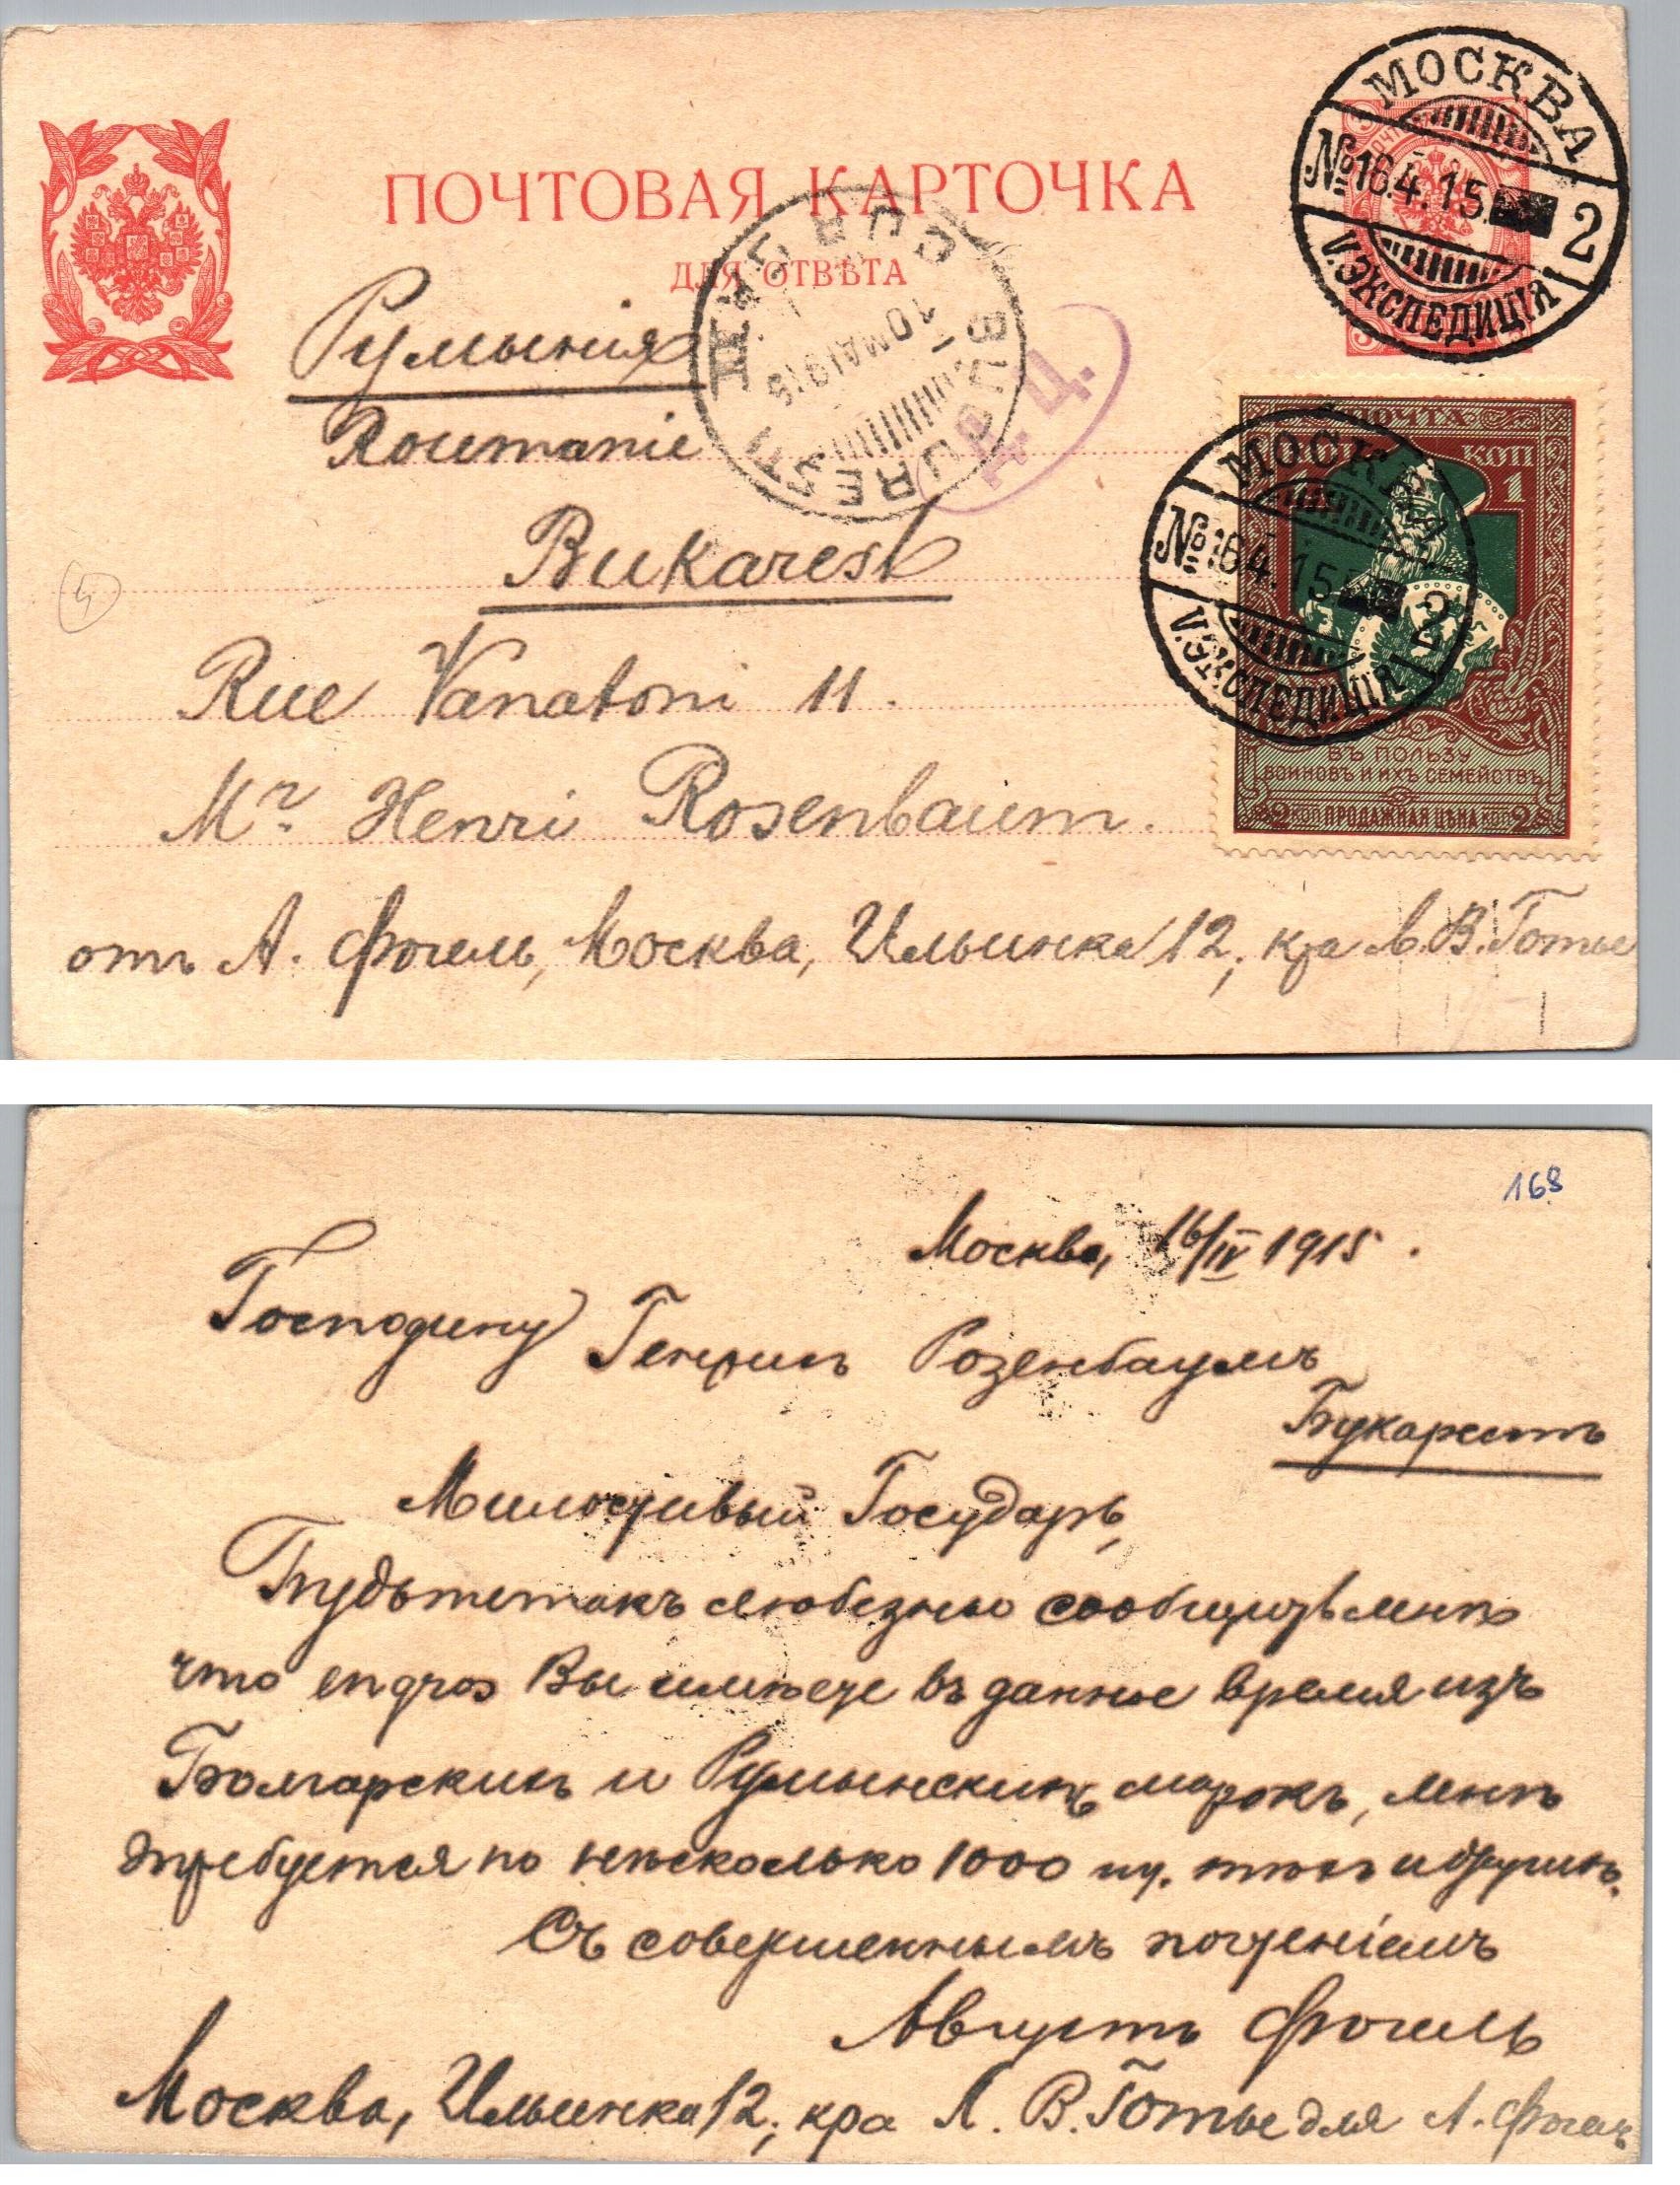 ПОЧТОВАЯ КАРТОЧКА
ДЛЯ ОТВѢТА
МОСКВА
№ 16.4.15. 2
V. ЭКСПЕДИЦІЯ
Румынія
Roumanie
BUCUREST
10 MAI 915
Д. Ц.
Bukarest
Rue Vanatoni 11.
Mr. Henri Rosenbaum.
отъ А. Фогель, Москва, Ильинка 12, кра Л. В. Готье
ПОЧТА
КОП
1
МОСКВА
№ 16.4.15 2
V. ЭКСПЕДИЦІЯ
ВЪ ПОЛЬЗУ
ВОИНОВЪ И ИХЪ СЕМЕЙСТВЪ
2 КОП ПРОДАЖНАЯ ЦѢНА КОП 2
4
168
Москва, 16/IV 1915.
Господину Генрихъ Розенбаумъ
Букарестъ
Милостивый Государь,
Будьте такъ любезны сообщить мнѣ
что engros Вы имѣете въ данное время изъ
Болгарскихъ и Румынскихъ марокъ, мнѣ
требуется по нѣсколько 1000 шт. тѣхъ и другихъ.
Съ совершеннымъ почтеніемъ
Августъ Фогель
Москва, Ильинка 12, кра Л. В. Готье для А. Фогель